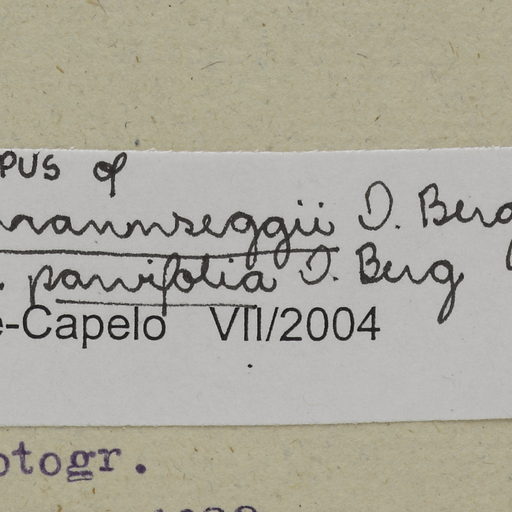 PUS of
mannseggii O. Berg
. parvifolia O. Berg
e-Capelo VII/2004
otogr.